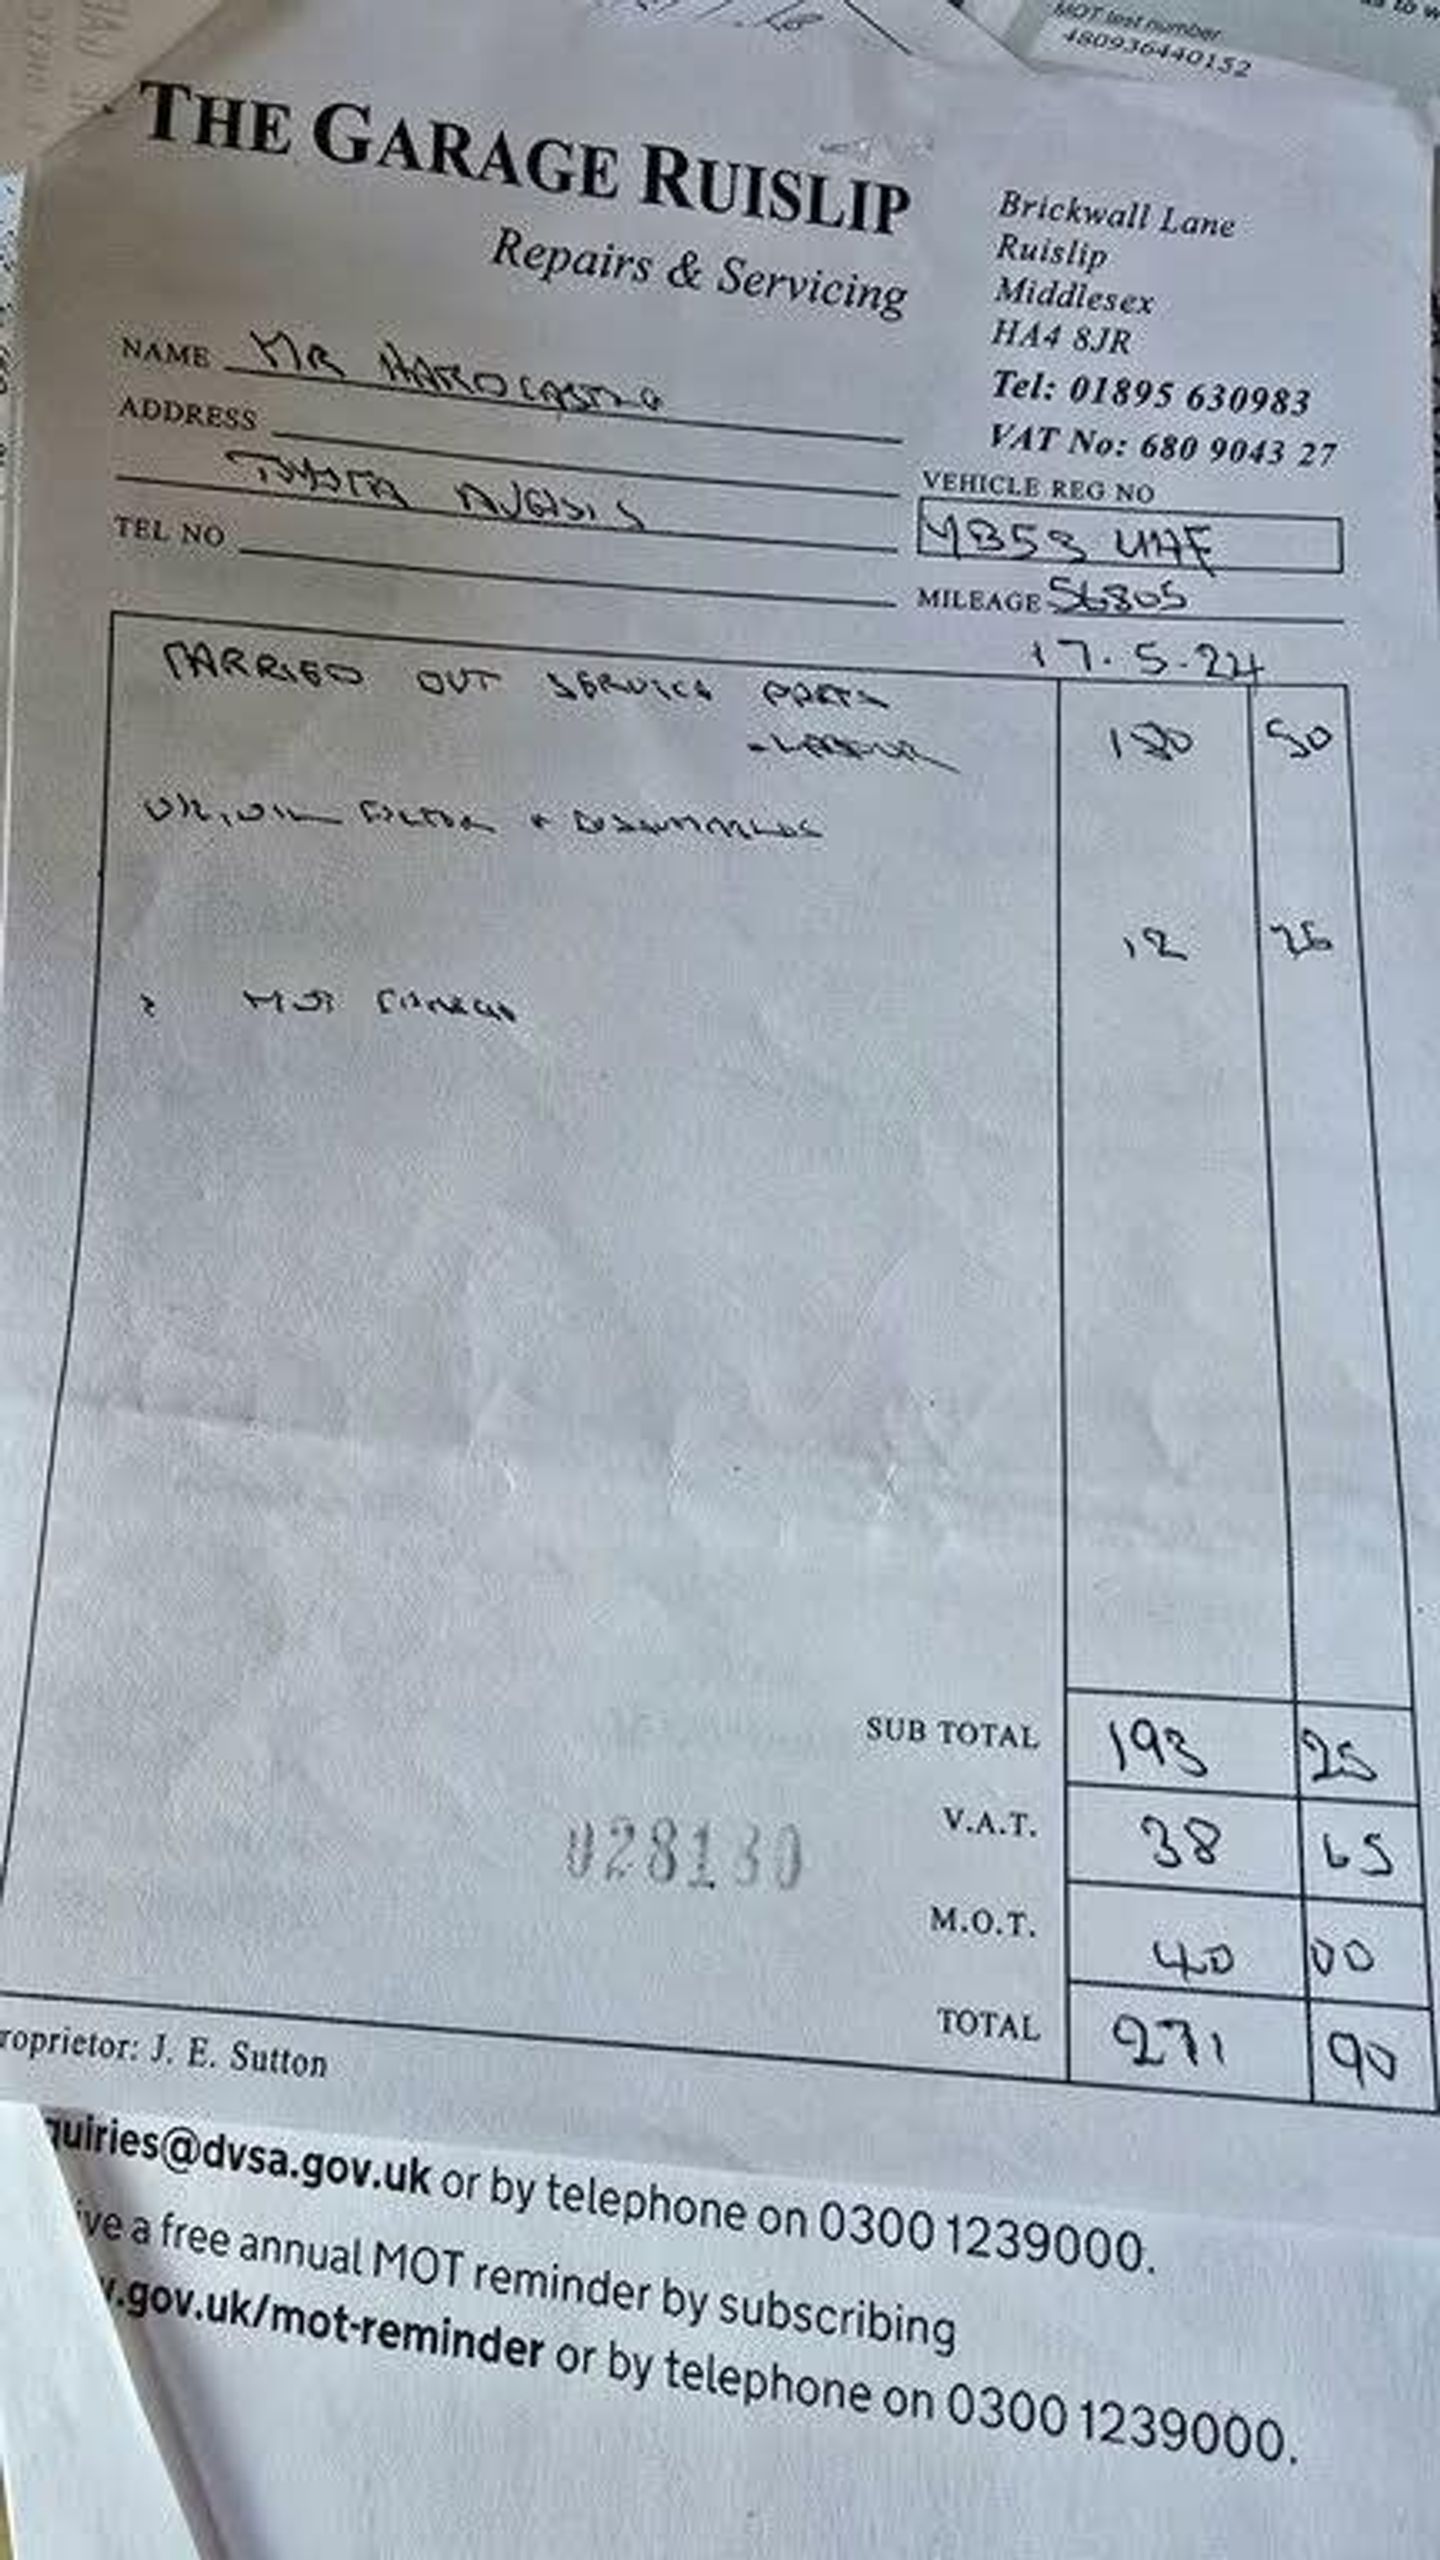 MOT test number
480936440152
THE GARAGE RUISLIP
Repairs & Servicing
Brickwall Lane
Ruislip
Middlesex
HA4 8JR
Tel: 01895 630983
VAT No: 680 9043 27
NAME MR
ADDRESS
TOYOTA AVENSIS
TEL NO
VEHICLE REG NO
YB53 UHF
MILEAGE 56805
17.5.24
CARRIED OUT SERVICE PARTS
+ LABOUR 180 50
OIL, OIL FILTER +
12 75
MOT
SUB TOTAL 193 25
V.A.T. 38 65
028130
M.O.T. 40 00
TOTAL 271 90
roprietor: J. E. Sutton
quiries@dvsa.gov.uk or by telephone on 0300 1239000.
ive a free annual MOT reminder by subscribing
.gov.uk/mot-reminder or by telephone on 0300 1239000.